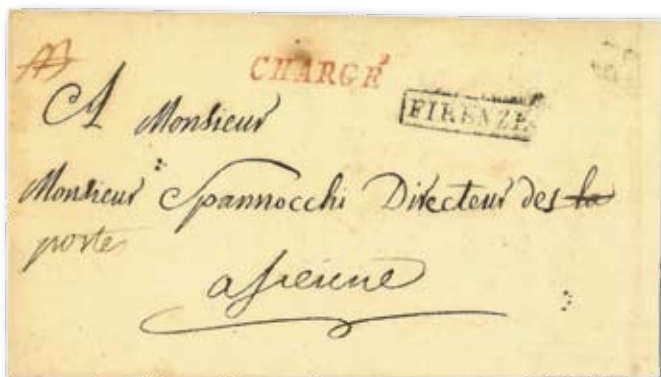 CHARGÉ
FIRENZE
A Monsieur
Monsieur Spannocchi Directeur des la
poste
a sienne